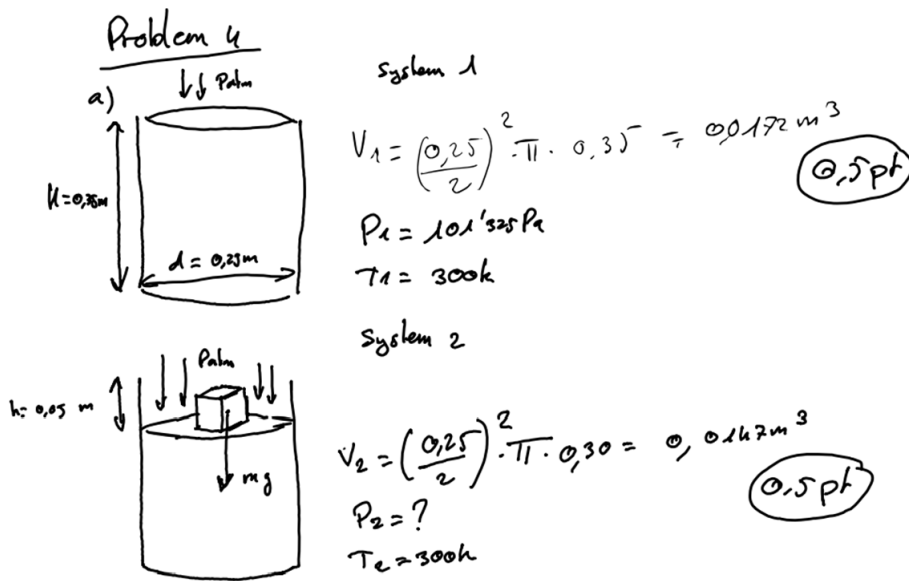 Problem 4
a)
↓↓ Patm
H=0,35m
d = 0,25m
System 1
V₁ = (0,25/2)² · π · 0,35 = 0,0172 m³
0,5pt
P₁ = 101'325Pa
T₁ = 300k
System 2
Patm
h=0,05 m
mg
V₂ = (0,25/2)² · π · 0,30 = 0,0147m³
0,5pt
P₂ = ?
T₂ = 300k